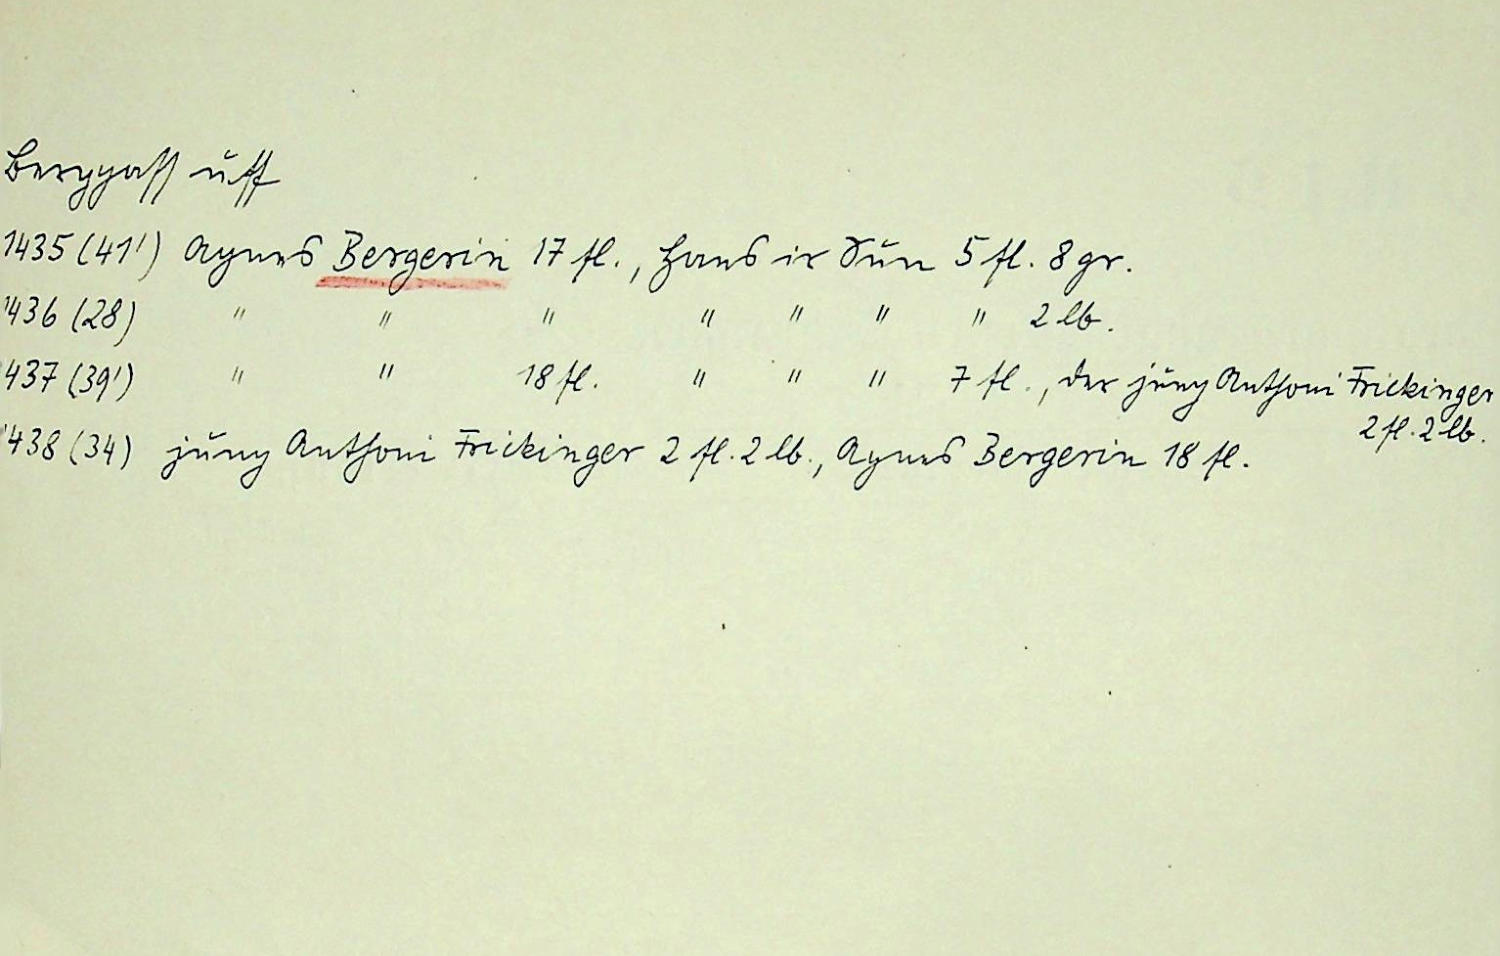 Berggass uff
1435 (41') Agnes Bergerin 17 fl., Hans ir Sun 5 fl. 8 gr.
1436 (28) " " " " " " " 2 lb.
1437 (39') " " 18 fl. " " " 7 fl., der jung Anthoni Frickinger
2 fl. 2 lb.
1438 (34) jung Anthoni Frickinger 2 fl. 2 lb., Agnes Bergerin 18 fl.